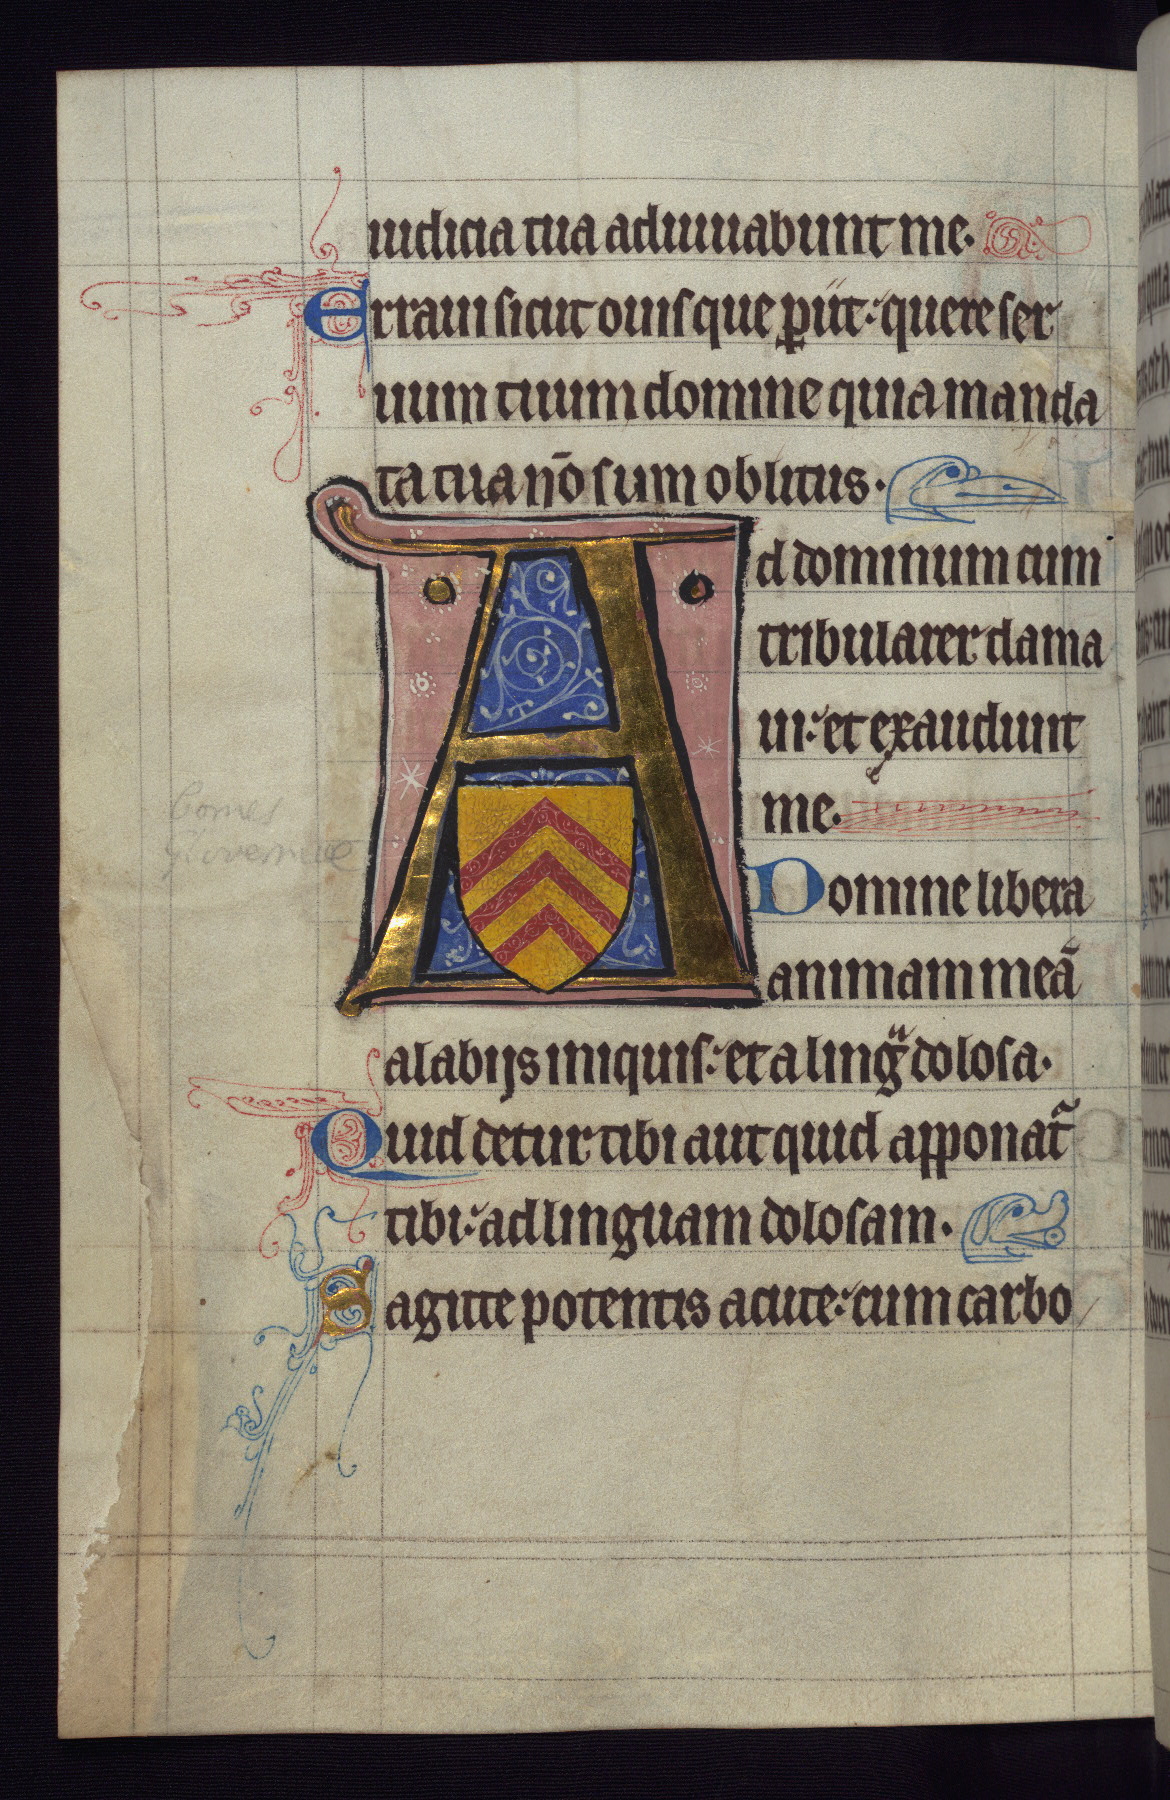 iudicia tua adiuuabunt me.
Erraui sicut ouis que p̱iit: quere ser
uum tuum domine quia manda
ta tua nō sum oblitus.
Ad dominum cum
tribularer clama
ui: et exaudiuit
me.
Domine libera
animam meā
a labijs iniquis: et a lingᵃ dolosa.
Quid detur tibi aut quid apponat᷑
tibi: ad linguam dolosam.
Sagitte potentis acute: cum carbo
Comes